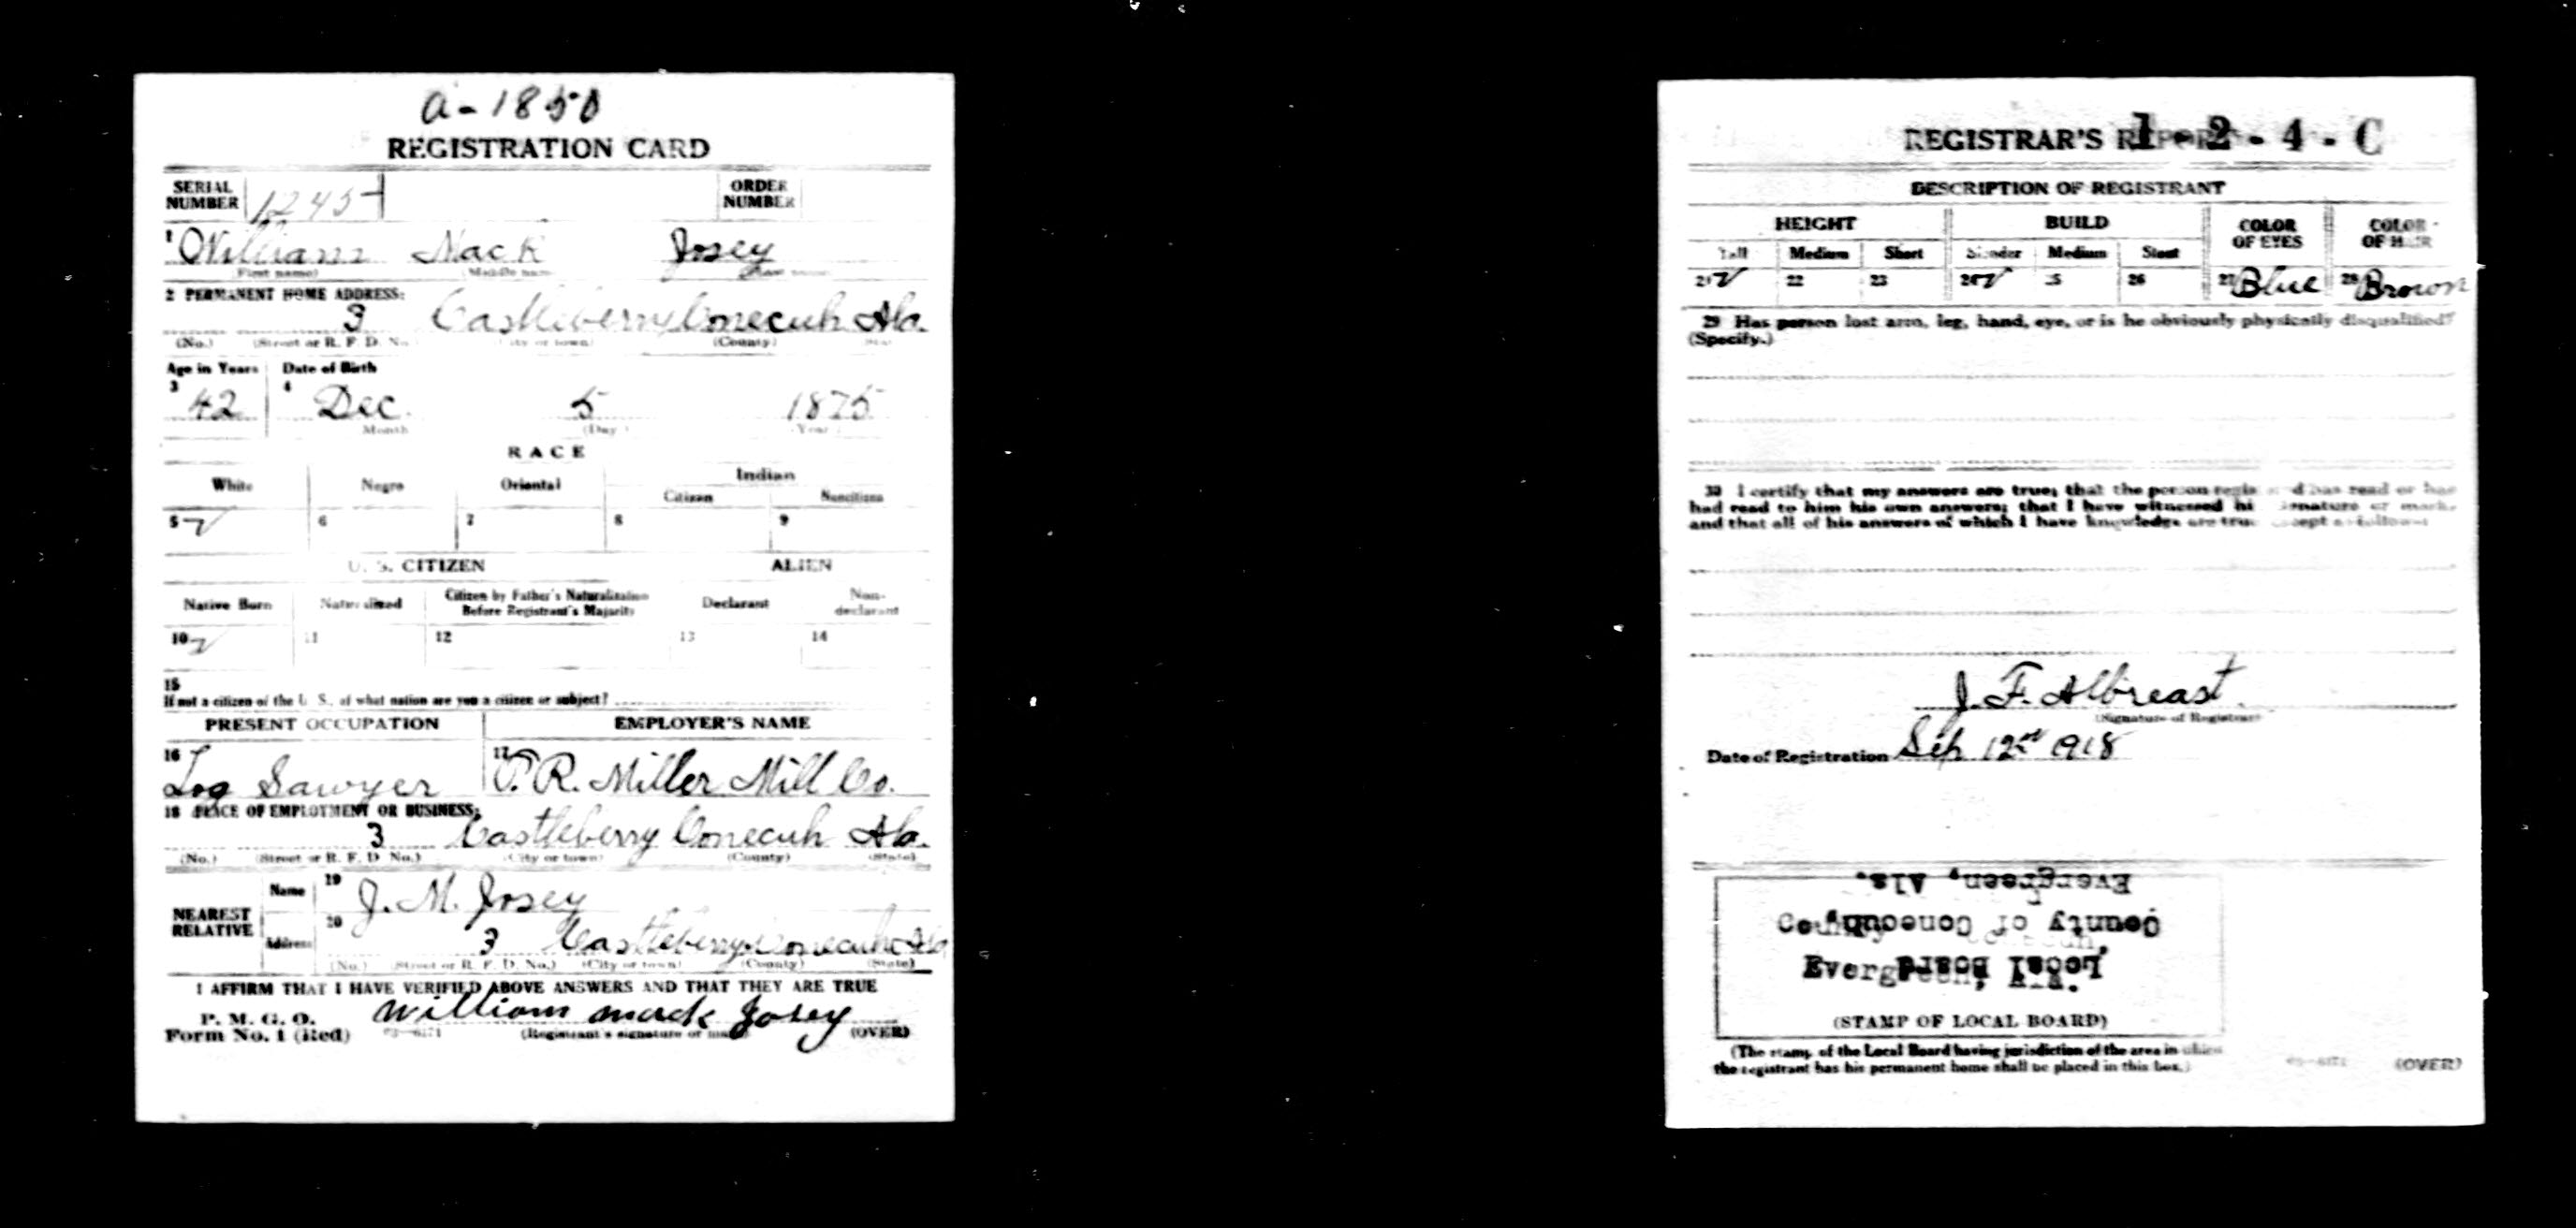 a-1850
REGISTRATION CARD
SERIAL NUMBER 1245 ORDER NUMBER
1 William Mack Josey
(First name) (Middle name) (Last name)
2 PERMANENT HOME ADDRESS:
3 Castleberry Conecuh Ala.
(No.) (Street or R. F. D. No.) (City or town) (County) (State)
Age in Years Date of Birth
3 42 4 Dec. 5 1875
Month (Day) Year
RACE
White Negro Oriental Indian
Citizen Noncitizen
5 ✓ 6 7 8 9
U. S. CITIZEN ALIEN
Native Born Naturalized Citizen by Father's Naturalization Before Registrant's Majority Declarant Non-declarant
10 ✓ 11 12 13 14
15
If not a citizen of the U. S., of what nation are you a citizen or subject?
PRESENT OCCUPATION EMPLOYER'S NAME
16 Log Sawyer 17 T. R. Miller Mill Co.
18 PLACE OF EMPLOYMENT OR BUSINESS:
3 Castleberry Conecuh Ala.
(No.) (Street or R. F. D. No.) (City or town) (County) (State)
NEAREST RELATIVE Name 19 J. M. Josey
Address 20 3 Castleberry Conecuh Ala
(No.) (Street or R. F. D. No.) (City or town) (County) (State)
I AFFIRM THAT I HAVE VERIFIED ABOVE ANSWERS AND THAT THEY ARE TRUE
P. M. G. O.
Form No. 1 (Red) 03-6171 William Mack Josey
(Registrant's signature or mark) (OVER)
REGISTRAR'S REPORT 1-2-4-C
DESCRIPTION OF REGISTRANT
HEIGHT BUILD COLOR OF EYES COLOR OF HAIR
Tall Medium Short Slender Medium Stout
21 ✓ 22 23 24 ✓ 25 26 27 Blue 28 Brown
29 Has person lost arm, leg, hand, eye, or is he obviously physically disqualified?
(Specify.)
30 I certify that my answers are true; that the person registered has read or has
had read to him his own answers; that I have witnessed his signature or mark,
and that all of his answers of which I have knowledge are true, except as follows:
J. F. Albreast
(Signature of Registrar)
Date of Registration Sep 12th 1918
Local Board
County of Conecuh,
Evergreen, Ala.
(STAMP OF LOCAL BOARD)
(The stamp of the Local Board having jurisdiction of the area in which
the registrant has his permanent home shall be placed in this box.)
03-6171 (OVER)